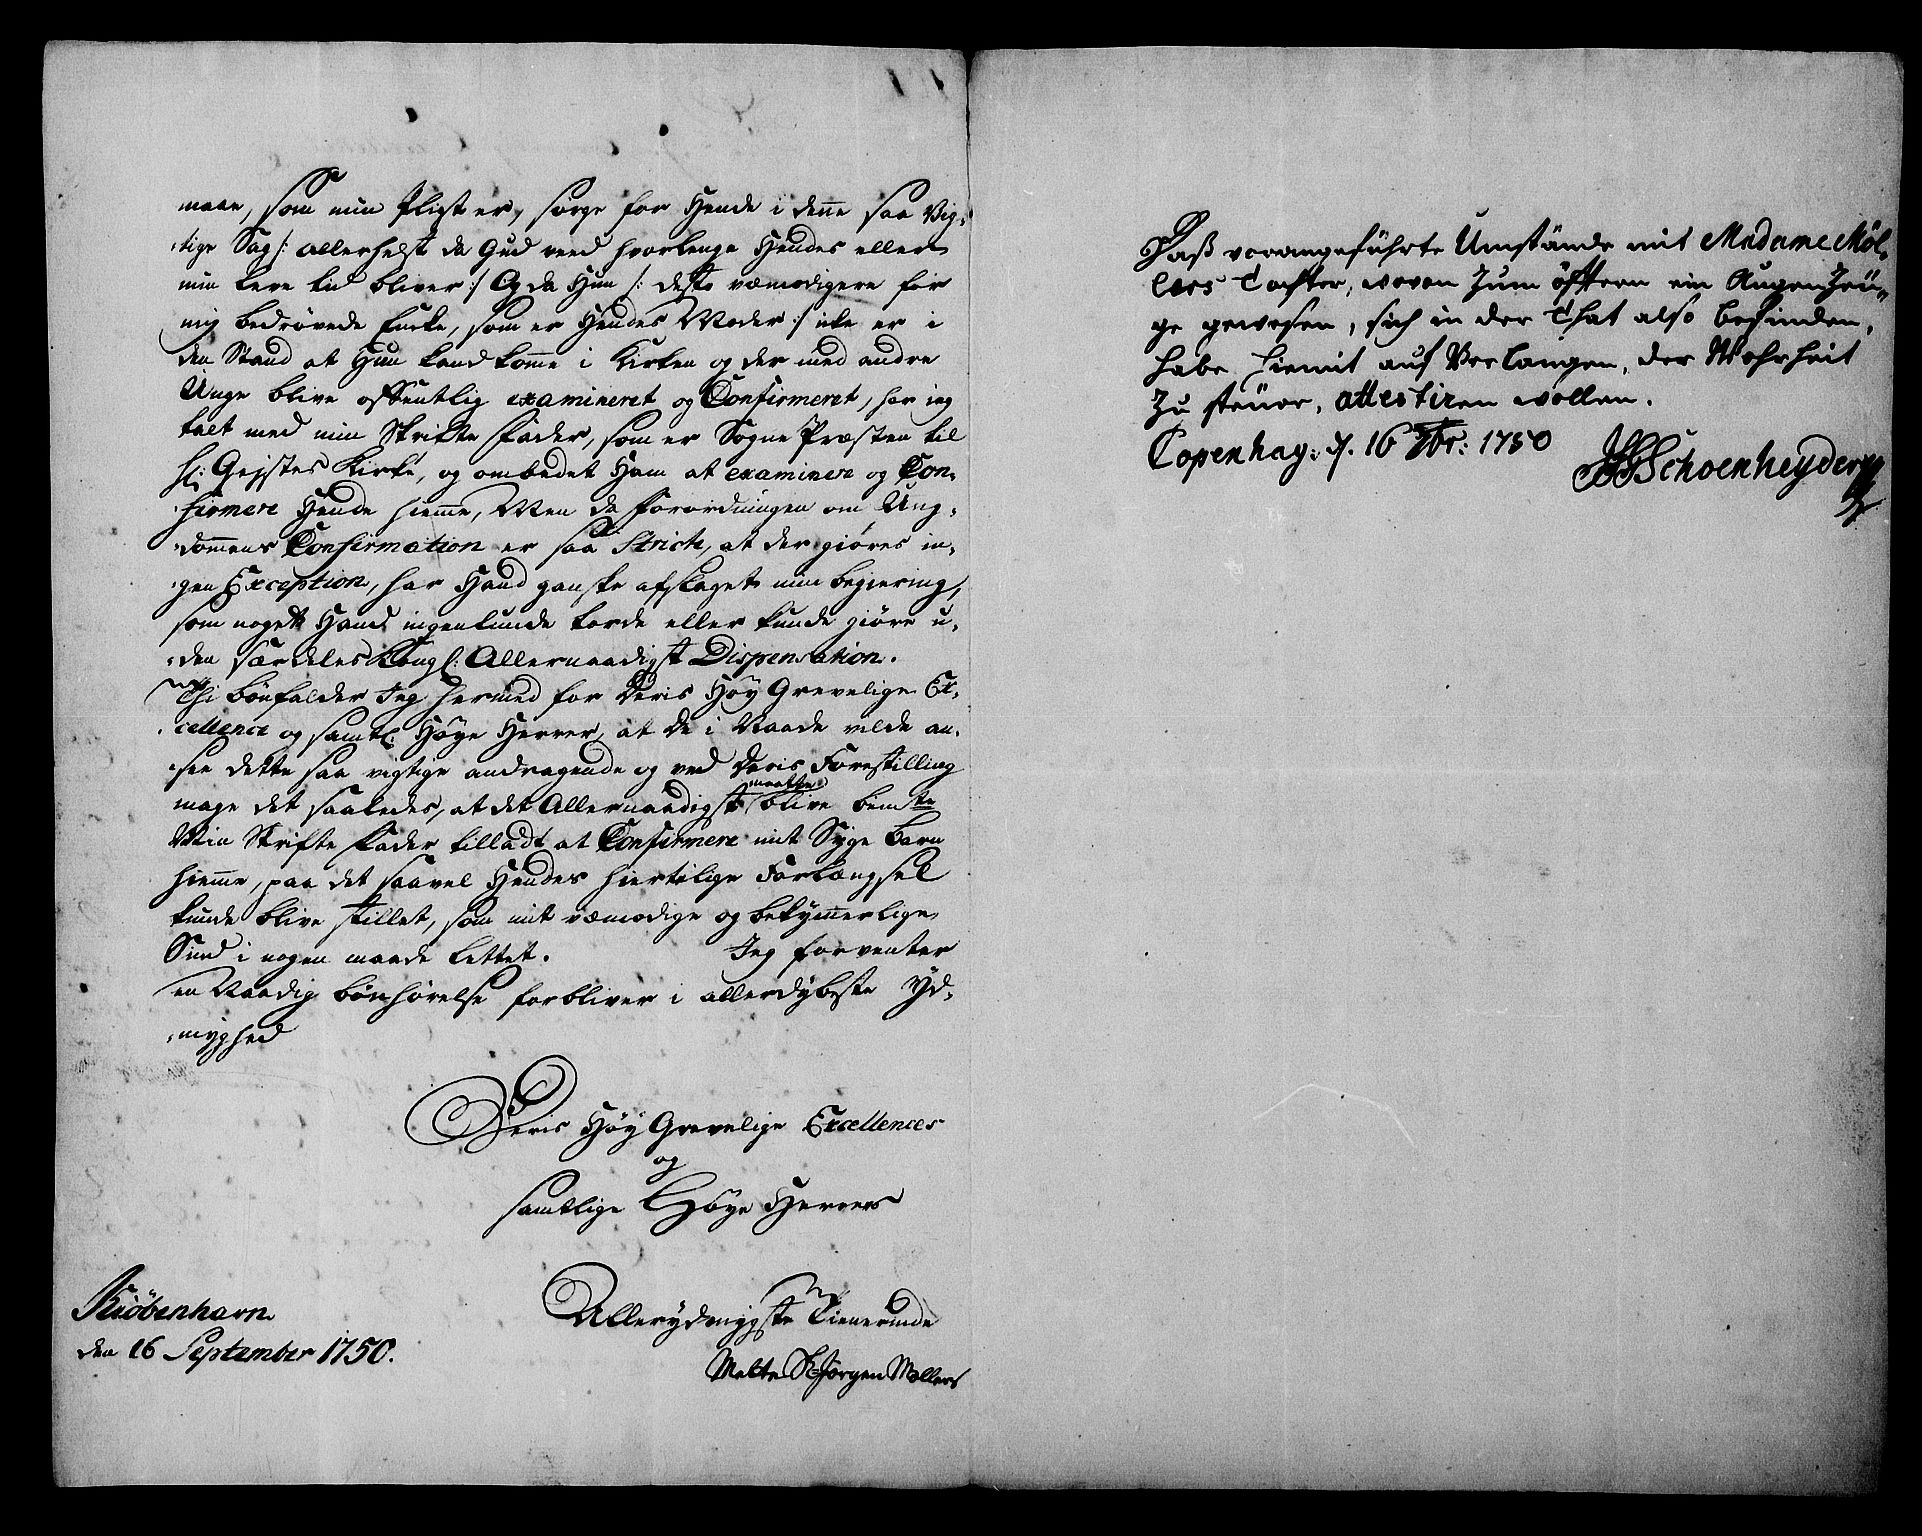 maae, som min Pligt er, sørge for Hende i denne saa Vig-
tige Sag /: allerhelst da Gud veed hvorlenge Hendes eller
min Leve tid bliver :/ Og da Hun /: desto væmodigere for
mig bedrøvede Encke, som er Hendes Moder :/ icke er i
den Stand at Hun kand komme i Kirken og der med andre
Unge blive offentlig examineret og Confirmeret, har ieg
talt med min Skrifte Fader, som er Sogne Præsten til
Hl: Gejstes Kirke, og ombedet Ham at examinere og Con-
firmere Hende hieme, Men da Forordningen om Ung-
dommens Confirmation er saa Strict, at der giøres in-
gen Exception, har Hand ganske afslaget min begiering,
som noget Hand ingenlunde torde eller kunde giøre u-
den særdeles Kongl: Allernaadigst Dispensation.
Thi bønfalder Jeg hermed for Deris Høy Grevelige Ex-
cellence og samtl: Høye Herrer, at De i Naade vilde an-
see dette saa vigtige andragende og ved Deris Forestilling
mage det saaledes, at det Allernaadigst maatte blive bemte
Min Skrifte Fader tilladt at Confirmere mit Syge barn
hieme, paa det saavel Hendes hiertelige Forlængsel
kunde blive stillet, som mit væmodige og bekymerlige
Sind i nogen maade lettet. Jeg forventer
en Naadig bønhørelse forbliver i allerdybeste Yd-
myghed
Deris Høy Grevelige Excellences
og
samtlige Høye Herrers
Kiøbenhavn
den 16 September 1750.
Allerydmygste Tienerinde
Mette Sl Jørgen Møllers
Daß vorangeführte Umstände mit Madame Möl-
lers Tochter, wovon zum öfftern ein Augenzeü-
ge gewesen, sich in der That also befinden,
habe hiemit auf Verlangen, der Wahrheit
zu steüer, attestiren wollen.
Copenhag: d. 16 7br: 1750
Schoenheyder